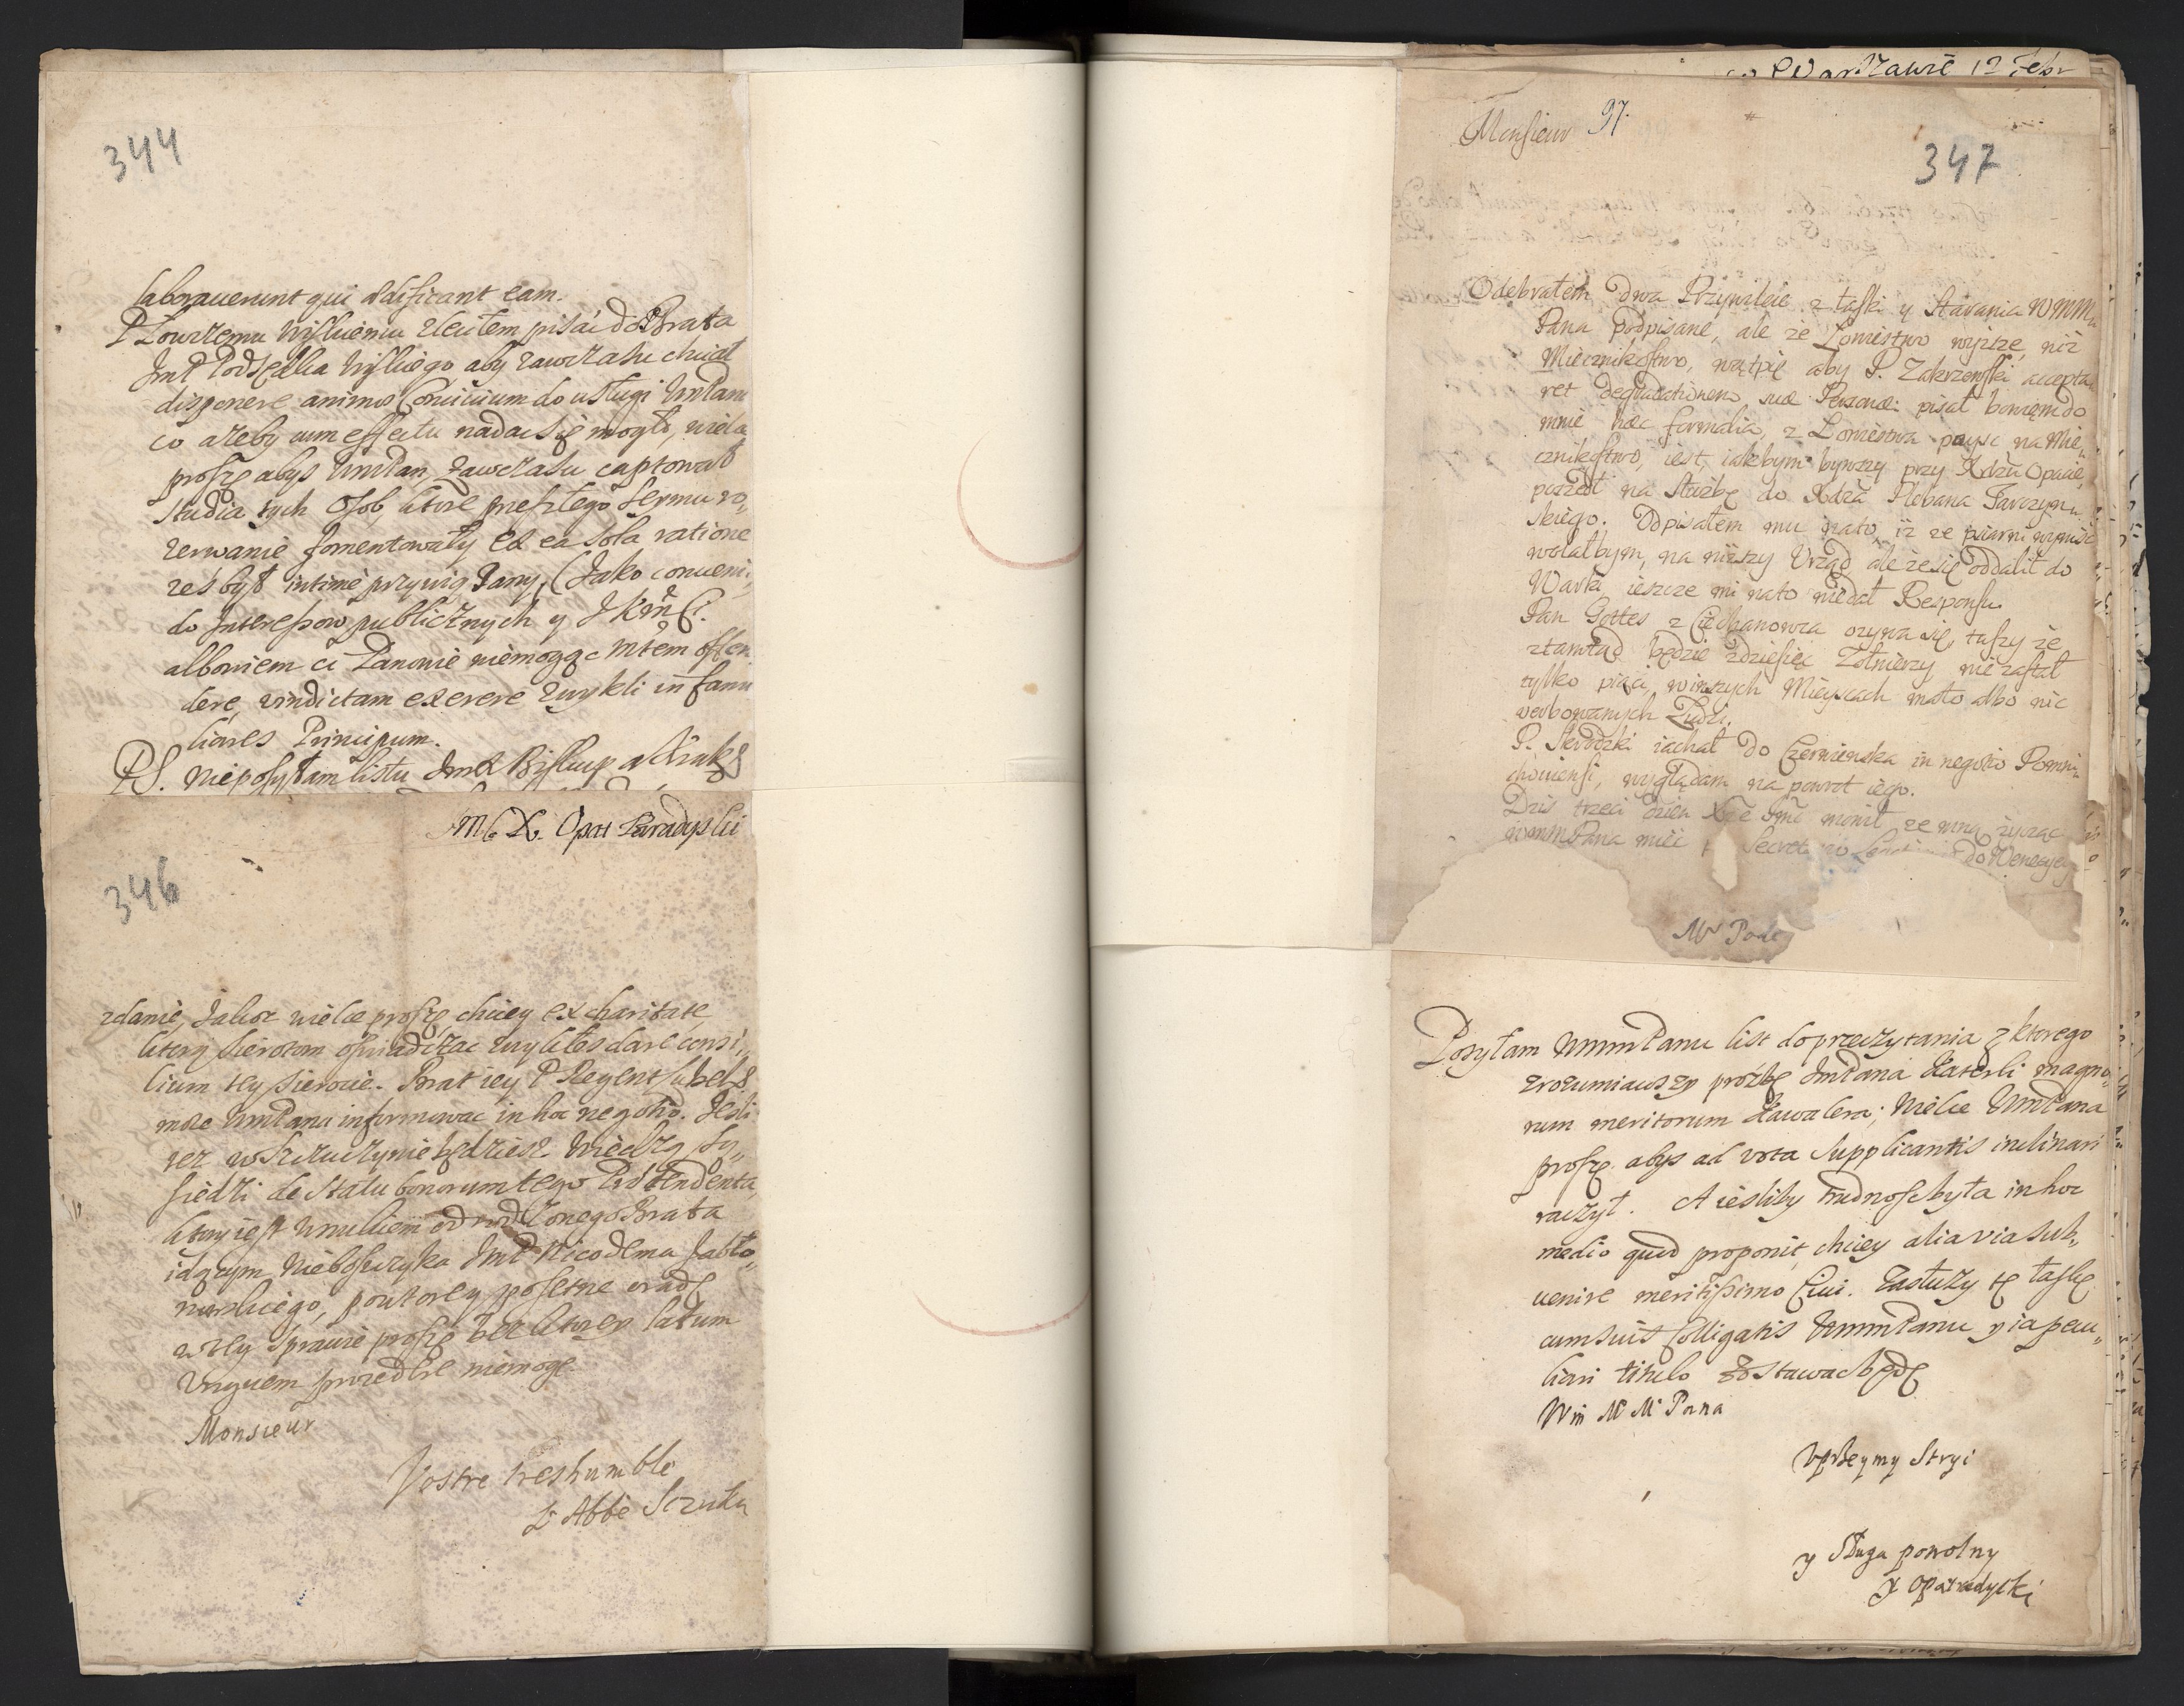 344
laborauerunt qui ædificant eam.
P Łowczemu Wiskiemu zleciłem pisać do Brata
Jmć Podsędka Wiskiego aby zawczasu chciał
disponere animos Conciuium do usługi WmPana
co ażeby cum effectu nadać się mogło, wielce
proszę abyś WmPan, zawczasu captował
studia tych Osob, ktore przeszłego seymu ro,
zerwanie fomentowały ex ea sola ratione
żeś był intime przywiązany, (Jako conueni,
do Interessow publicznych y J Krm Ci.
albowiem ci Panowie niemogąc offen
dere, vindictam exerere zwykli in fami
liares Principum.
PS. nieposyłam listu Jmć X Biskupa Krak
Jm X. Opat Paradyski
346
zdanie, Jakoż wielce proszę, chciey ex charitate
ktorą sierotom oświadczac zwykłeś dare consi,
lium tey sierocie. Brat iey P Regent
może WmPana informowac in hoc negotio. Jesli
tez w Szczuczynie będziesz wiedzą są,
siedzi de statu bonorum tego Prætendenta,
ktory iest wnukiem od rodzonego Brata
idącym Nieboszczyka Jmć Nicodema Jabło,
nowskiego, powtorey posetne o radę
w tey sprawie proszę bez ktorey latum
Unguem przedsie niemogę.
Monsieur
Vostre treshumble
L'Abbè Sczuka
w Warszawie 12 Febr
Monsieur 97.
347
Odebrałem dwa Przywileie z łaski y starania WMM
Pana podpisane, ale że Łowiestwo wyższe niż
Miecznikostwo, wątpię aby P. Zakrzewski accepta,
ret degradationem suæ Personæ: pisał bowiem do
mnie hæc formalia, z Łowiestwa puysc na Mie,
cznikostwo, iest, iakbym bywszy przy Xdzu Opacie,
poszedł na służbę do Xdza Plebana Tarczyn,
skiego. Odpisałem mu nato, iż ze psiarni wyniść
wolałbym, na niższy Urząd, ale że się oddalił do
Warki ieszcze mi nato niedał Responsu.
Pan Gottes z Ciechanowca ozywa się, tuszy że
ztamtąd będzie zdziesięc Zołnierzy, nie zastał
tylko pięci, winszych Mieyscach mało albo nic
werbowanych Ludzi.
P. Skrodzki iachał do Czerwienska in negotio Pomni,
chowiensi, wyglądam na powrot iego.
Dzis trzeci dzien Xże Jmć mowił ze mną życząc
WmmPana mieć Secret do Wenecyey
Mr Pod
Posyłam WmmPanu list do przeczytania z ktorego
zrozumiawszy prozbę JmPana Katerli magno,
rum meritorum Kawalera; Wielce WmPana
proszę abyś ad vota supplicantis inclinari
raczył. A iesliby trudnosc była in hoc
medio quod proponit, chciey alia via sub,
uenire meritissimo Ciui. Zasłuży tę łaskę
cum suis Colligatis WmmPanu y ia pecu,
liari titulo zostawac będę
Wm M M Pana
Uprzeymy Stryi
y Sługa powolny
X Opatradyski